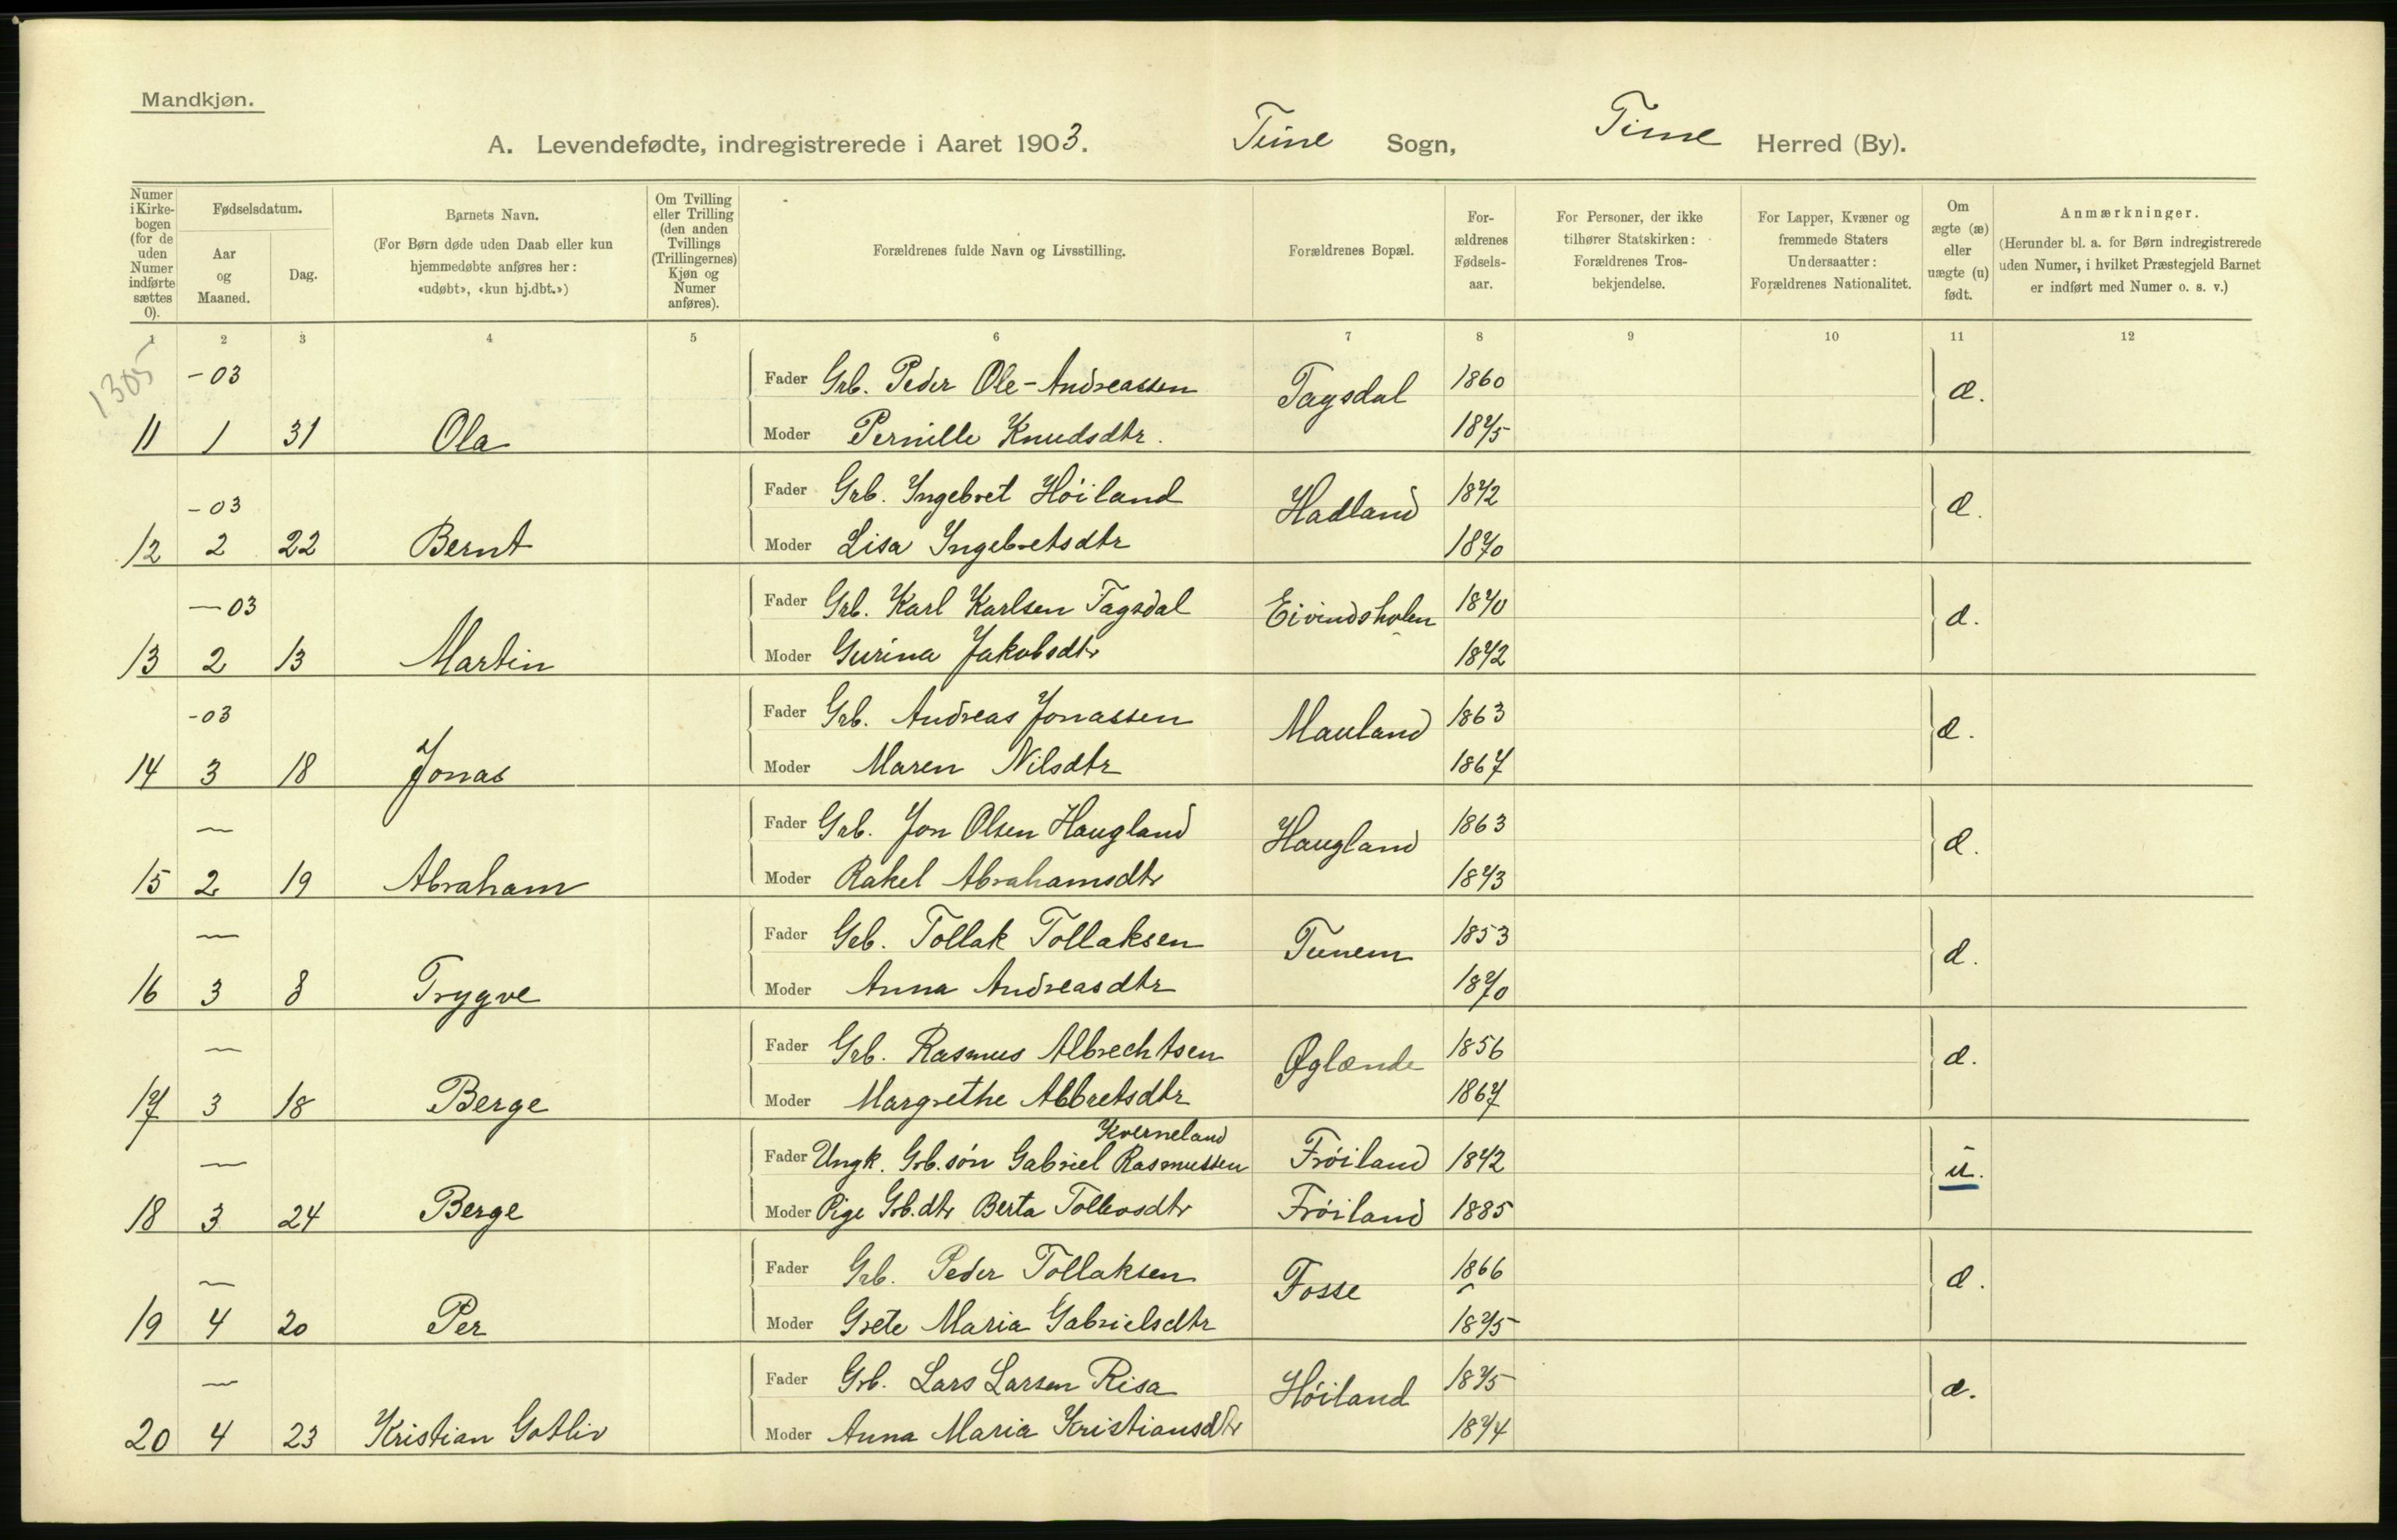 Mandkjøn.
A. Levendefødte, indregistrerede i Aaret 1903. Time Sogn, Time Herred (By).
Numer i Kirkebogen (for de uden Numer indførte sættes 0).
Fødselsdatum.
Aar og Maaned.
Dag.
Barnets Navn.
(For Børn døde uden Daab eller kun hjemmedøbte anføres her: «udøbt», «kun hj.dbt.»)
Om Tvilling eller Trilling (den anden Tvillings (Trillingernes) Kjøn og Numer anføres).
Forældrenes fulde Navn og Livsstilling.
Forældrenes Bopæl.
For-ældrenes Fødsels-aar.
For Personer, der ikke tilhører Statskirken: Forældrenes Tros-bekjendelse.
For Lapper, Kvæner og fremmede Staters Undersaatter: Forældrenes Nationalitet.
Om ægte (æ) eller uægte (u) født.
Anmærkninger.
(Herunder bl. a. for Børn indregistrerede uden Numer, i hvilket Præstegjeld Barnet er indført med Numer o. s. v.)
1 2 3 4 5 6 7 8 9 10 11 12
1305
-03 Fader Grb. Peder Ole-Andreassen Tagsdal 1860 æ.
11 1 31 Ola Moder Pernille Knudsdtr. 1875
-03 Fader Grb. Ingebret Höiland Hadland 1872 æ.
12 2 22 Bernt Moder Lisa Ingebretsdtr 1870
-03 Fader Grb. Karl Karlsen Tagsdal Eivindsholen 1870 æ.
13 2 13 Martin Moder Gurina Jakobsdtr 1872
-03 Fader Grb. Andreas Jonassen Mauland 1863 æ.
14 3 18 Jonas Moder Maren Nilsdtr 1867
— Fader Grb. Jon Olsen Haugland Haugland 1863 æ.
15 2 19 Abraham Moder Rakel Abrahamsdtr 1873
— Fader Grb. Tollak Tollaksen Tunem 1853 æ.
16 3 8 Trygve Moder Anna Andreasdtr 1870
— Fader Grb. Rasmus Albrechtsen Øglænde 1856 æ.
17 3 18 Berge Moder Margrethe Albretsdtr 1867
Kverneland
— Fader Ungk. Grb. sön Gabriel Rasmussen Fröiland 1872 u.
18 3 24 Berge Moder Pige Grb. dtr Berta Tollevsdtr Fröiland 1885
— Fader Grb. Peder Tollaksen Fosse 1866 æ.
19 4 20 Per Moder Grete Maria Gabrielsdtr 1875
— Fader Grb. Lars Larsen Risa Höiland 1875 æ.
20 4 23 Kristian Gotliv Moder Anna Maria Kristiansdtr 1874